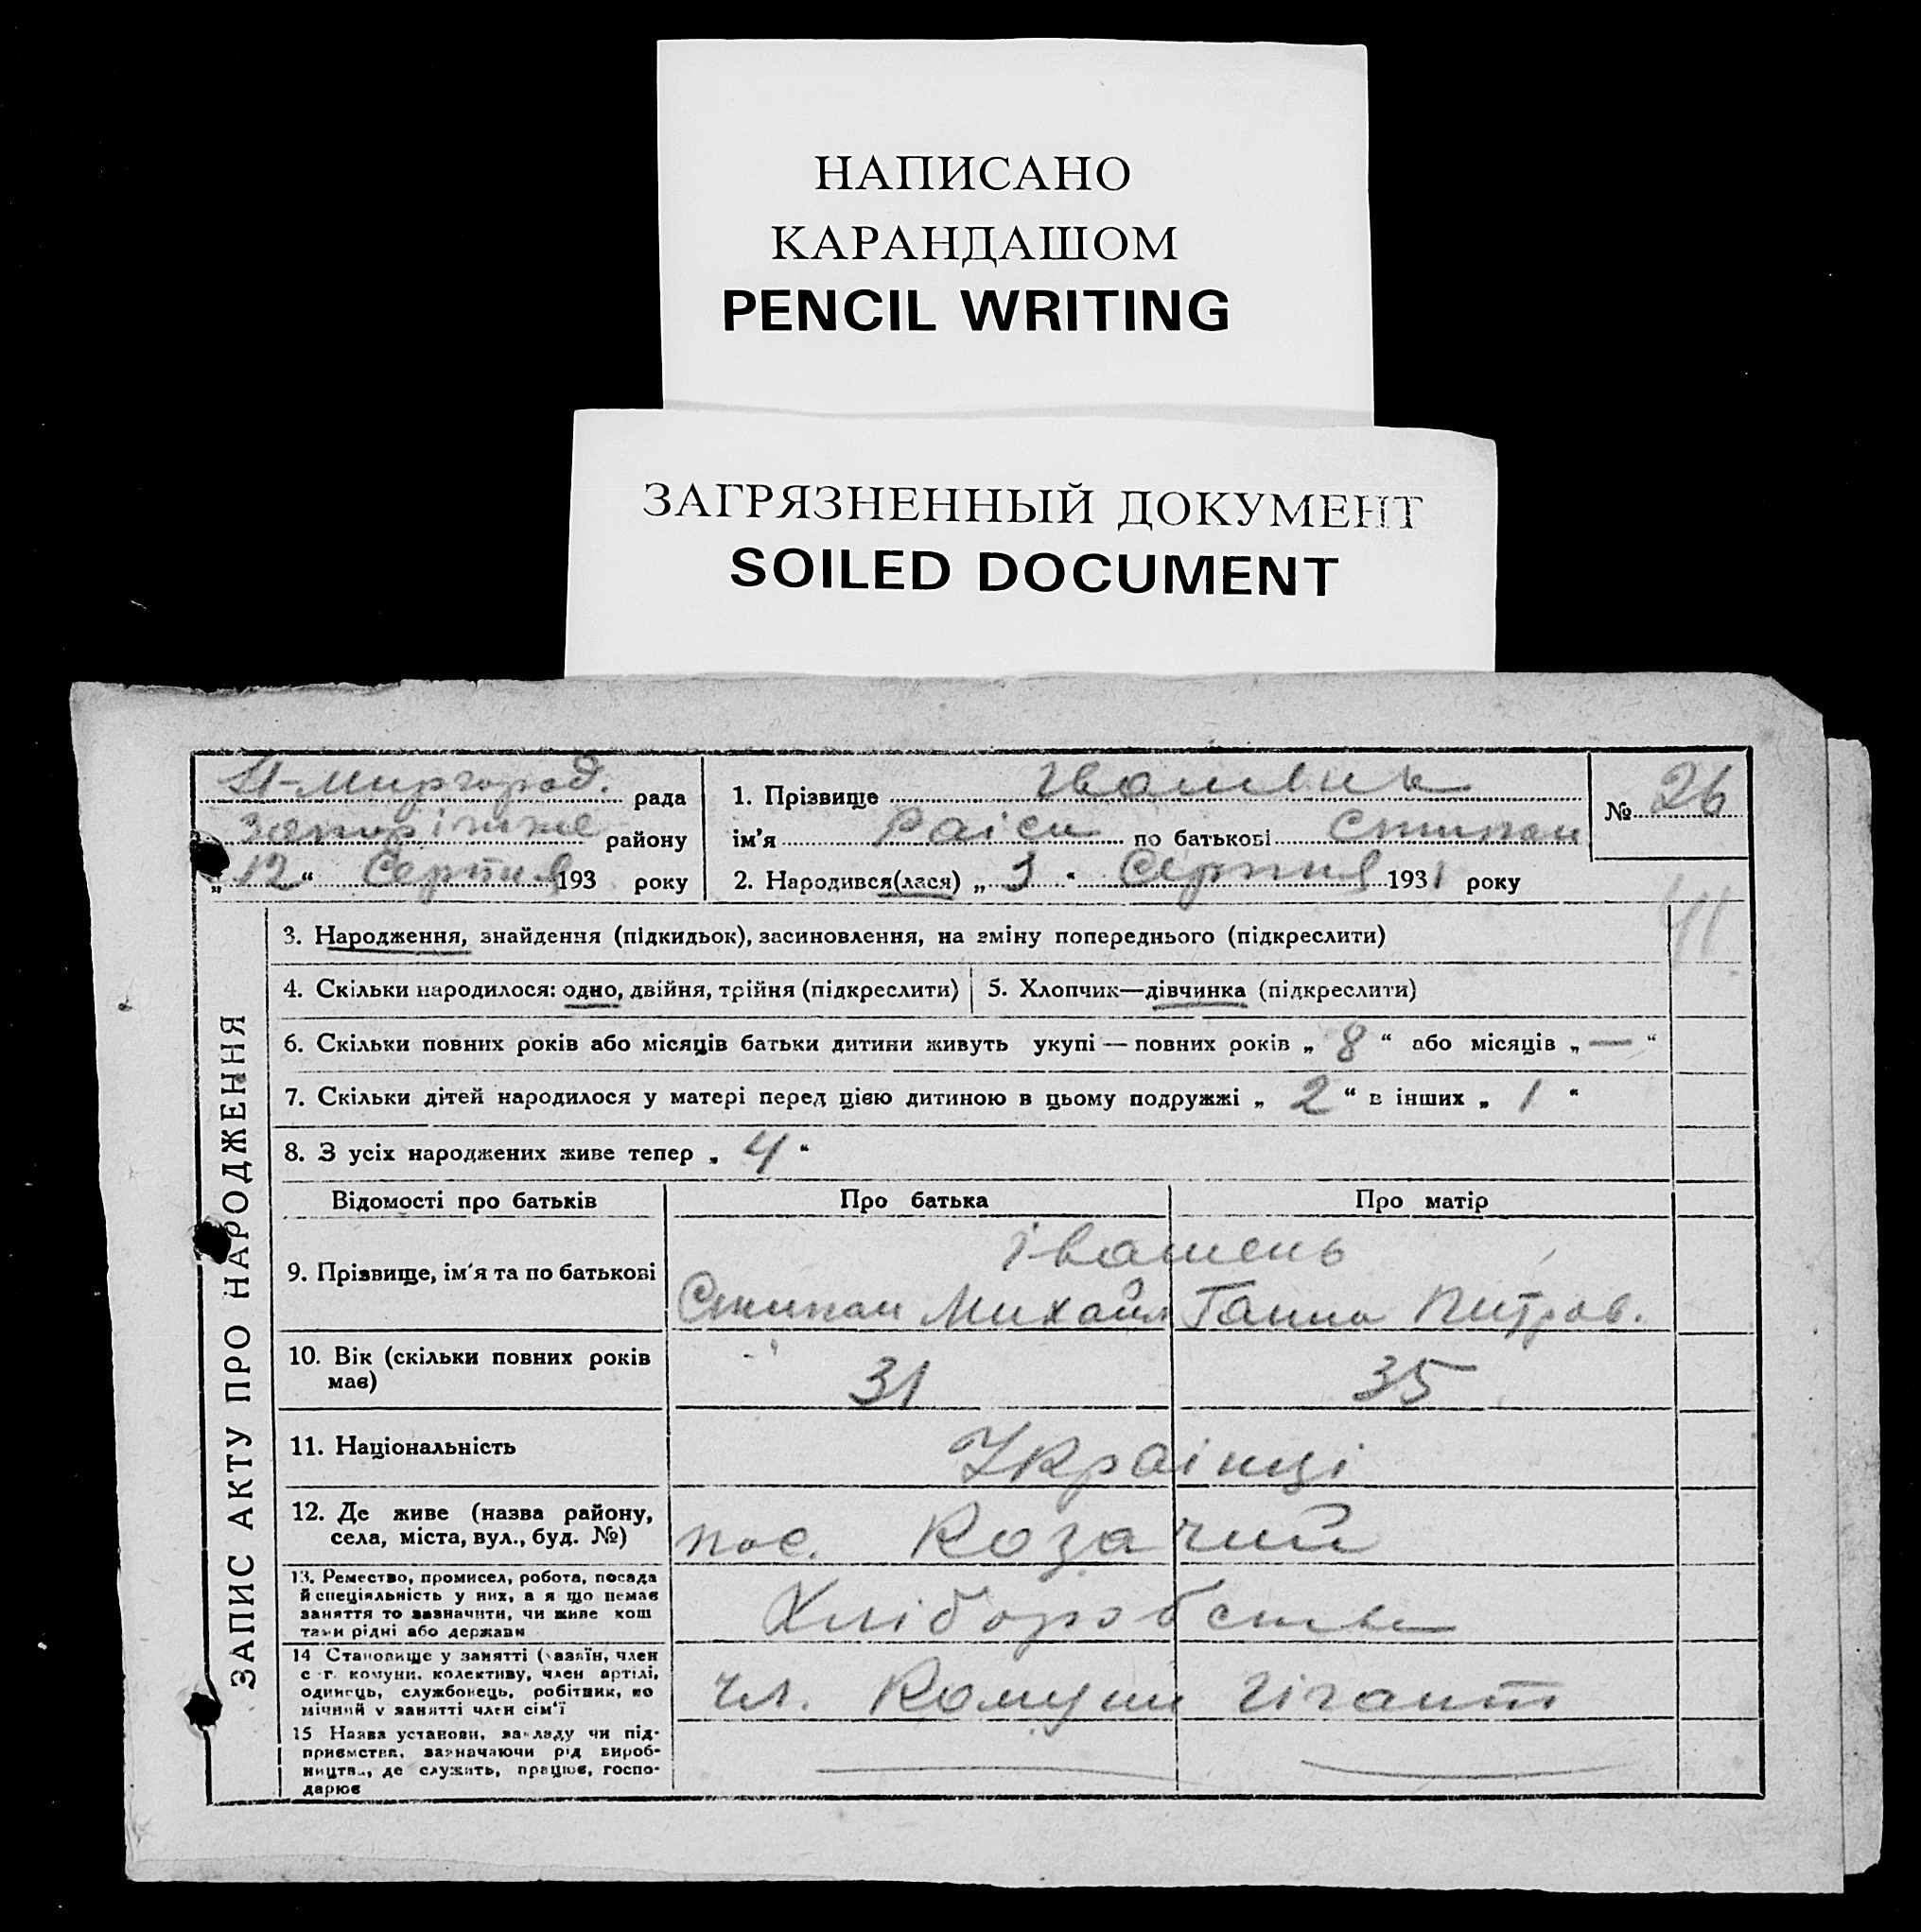 НАПИСАНО
КАРАНДАШОМ
PENCIL WRITING
ЗАГРЯЗНЕННЫЙ ДОКУМЕНТ
SOILED DOCUMENT
Н-Миргород. рада
Запоріжже району
„12“ Серпня 193 року
1. Прізвище Івашень
ім'я Раіса по батькові Стипан
2. Народився(лася) „3“ Серпня 1931 року
№ 26
41
ЗАПИС АКТУ ПРО НАРОДЖЕННЯ
3. Народження, знайдення (підкидьок), засиновлення, на зміну попереднього (підкреслити)
4. Скільки народилося: одно, двійня, трійня (підкреслити)
5. Хлопчик—дівчинка (підкреслити)
6. Скільки повних років або місяців батьки дитини живуть укупі — повних років „ 8 “ або місяців „ — “
7. Скільки дітей народилося у матері перед цією дитиною в цьому подружжі „ 2 “ в інших „ 1 “
8. З усіх народжених живе тепер „ 4 “
Відомості про батьків Про батька Про матір
9. Прізвище, ім'я та по батькові
Івашень
Стипан Михайл Ганна Питров.
10. Вік (скільки повних років
має)
31 35
11. Національність Українці
12. Де живе (назва району,
села, міста, вул., буд. №)
пос. Козачий
13. Ремество, промисел, робота, посада
й спеціяльність у них, а я що немає
заняття то зазначити, чи живе кош
тами рідні або держави
Хліборобства
14 Становище у занятті (хазяїн, член
с.-г. комуни, колективу, член артілі,
одинець, службовець, робітник, по
мічний у занятті член сім'ї
чл. Комуни Гігант
15 Назва установи, закладу чи під-
приємства, зазначаючи рід вироб-
ництва, де служить, працює, госпо-
дарює